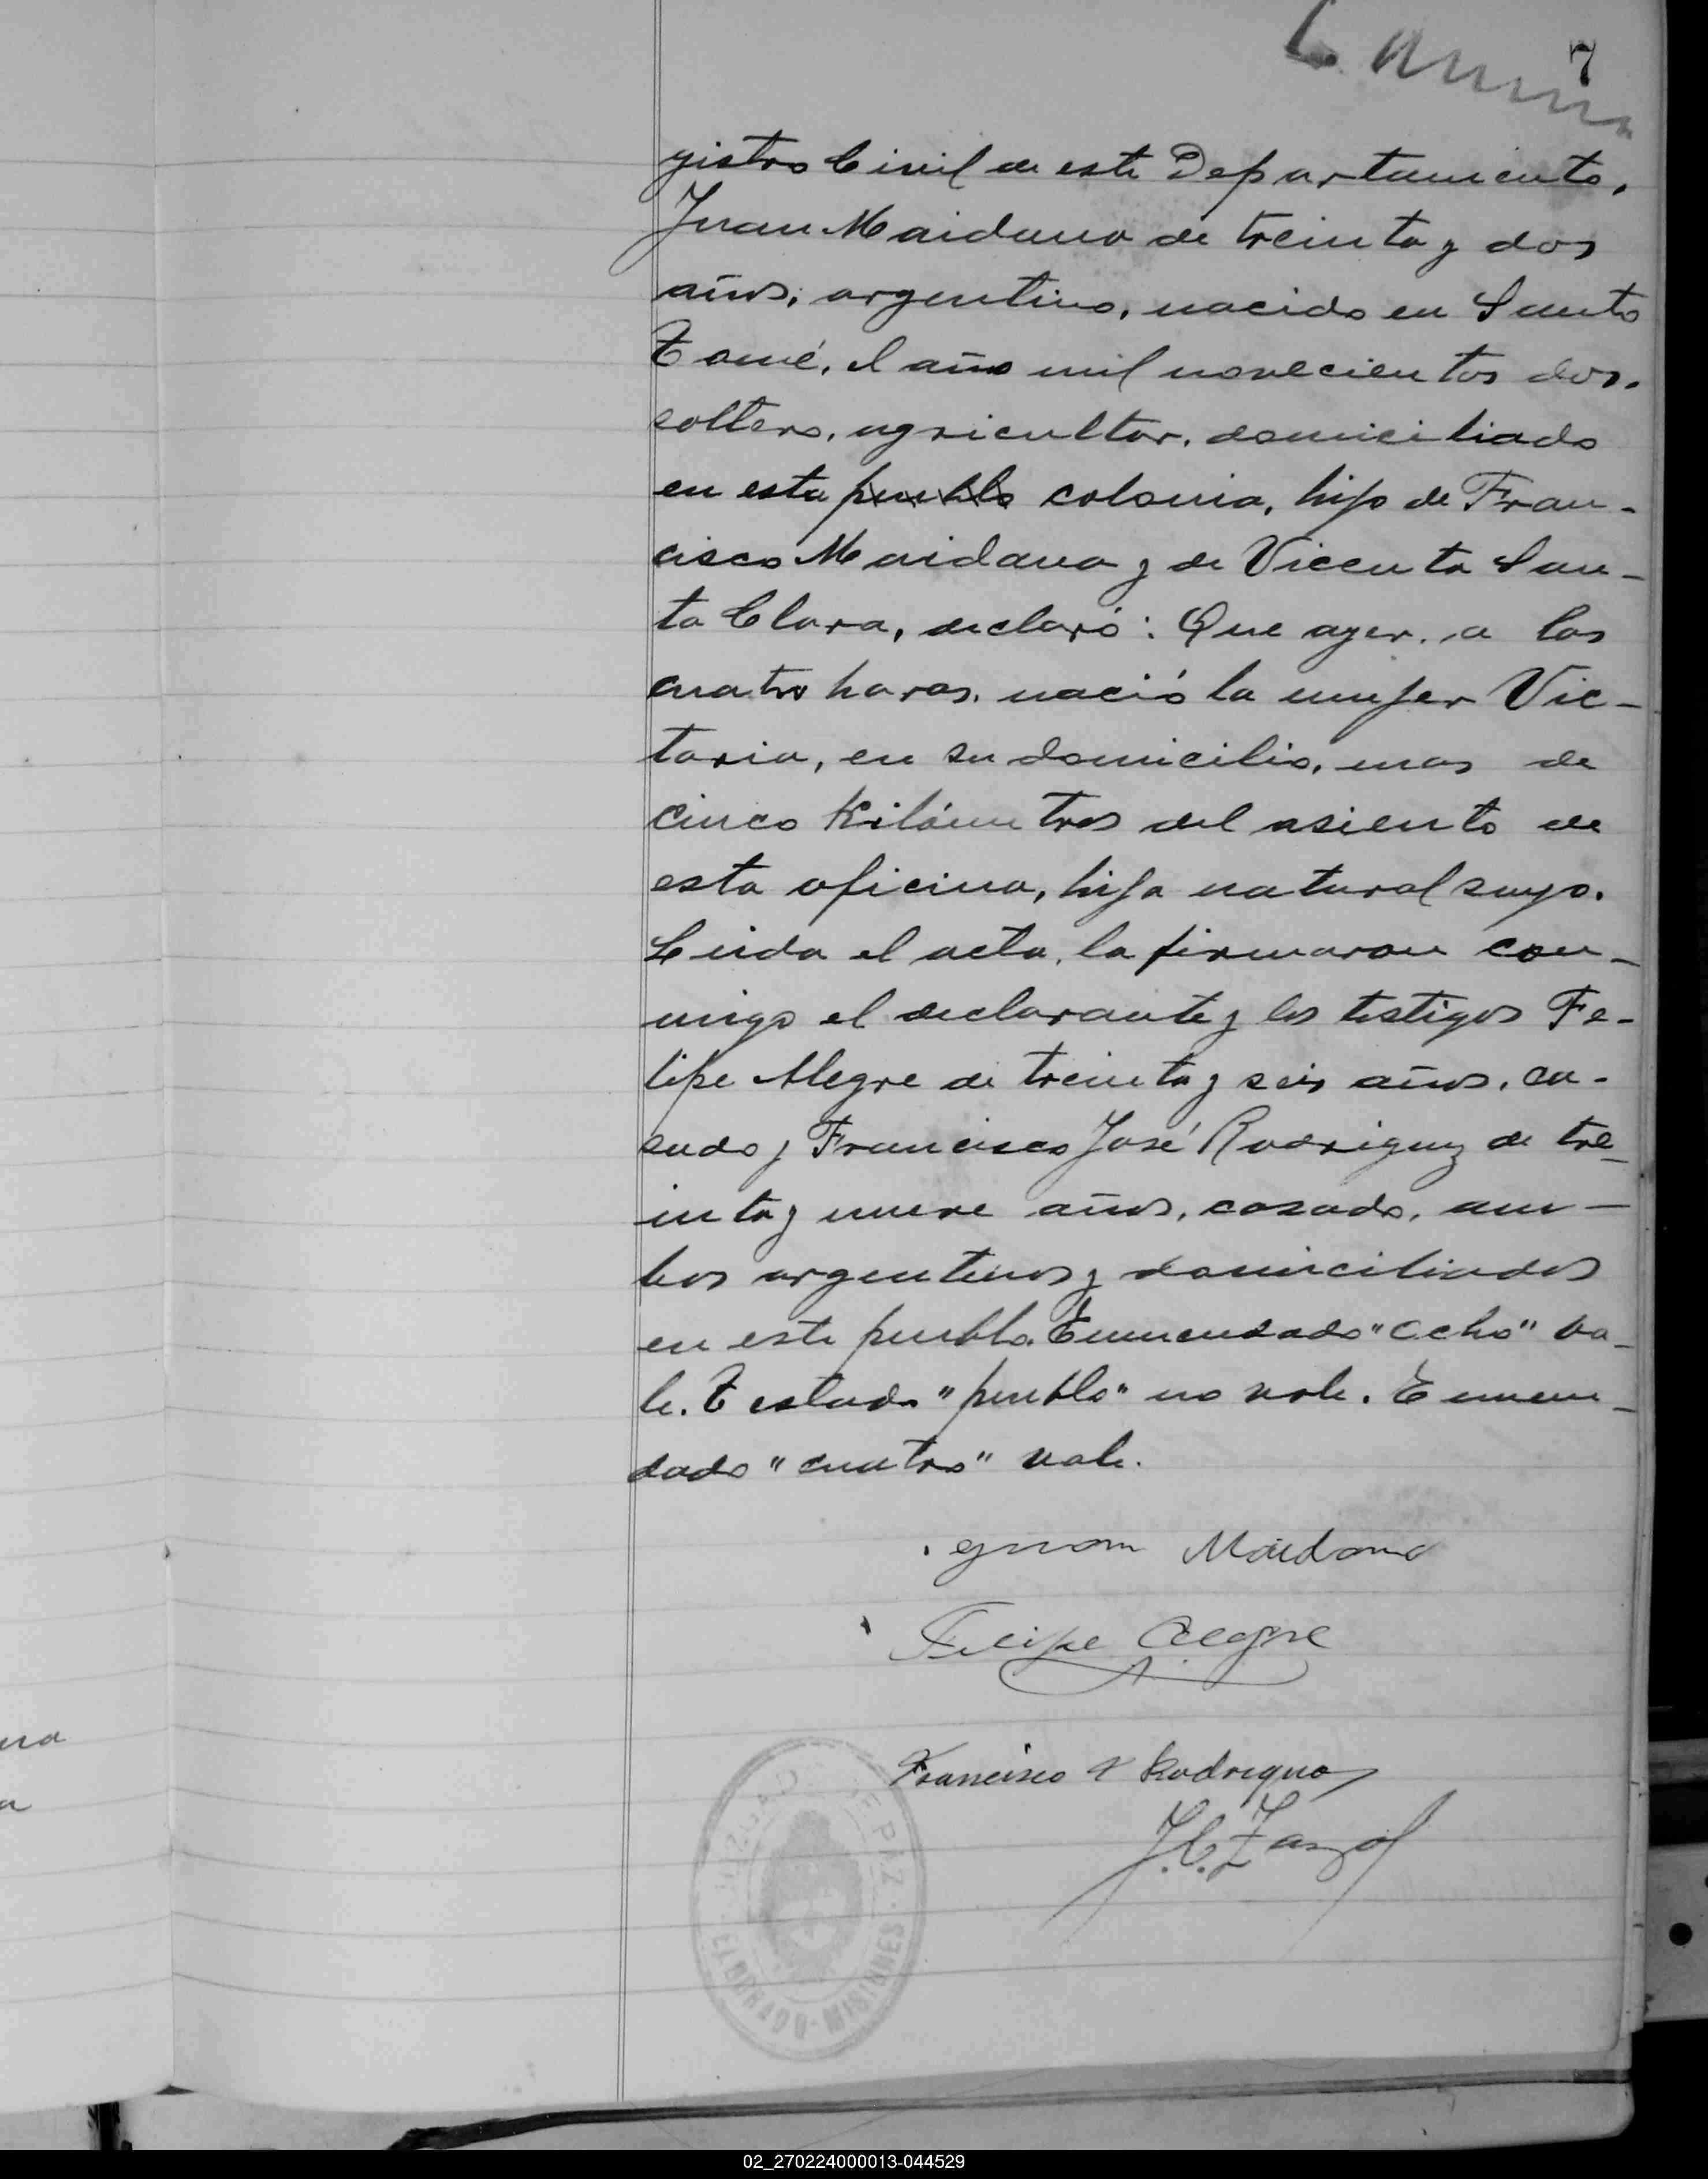 7
gistro Civil de este Departamento,
Juan Maidana de treinta y dos
años, argentino, nacido en Santo
Tomé, el año mil novecientos dos,
soltero, agricultor, domiciliado
en esta pueblo colonia, hijo de Fran-
cisco Maidana y de Vicenta San-
ta Clara, declaró: Que ayer, a las
cuatro horas, nació la mujer Vic-
toria, en su domicilio, mas de
cinco kilómetros del asiento de
esta oficina, hija natural suya.
Leida el acta, la firmaron con-
migo el declarante y los testigos Fe-
lipe Alegre de treinta y seis años, ca-
sado y Francisco José Rodriguez de tre-
inta y nueve años, casado, am-
bos argentinos y domiciliados
en este pueblo. Enmendado "ocho" va-
le. Testado "pueblo" no vale. Enmen-
dado "cuatro" vale.
Juan Maidana
Felipe Alegre
Francisco J Rodriguez
JUZGADO DE PAZ
CERRADO-MISIONES
na
a
02_270224000013-044529